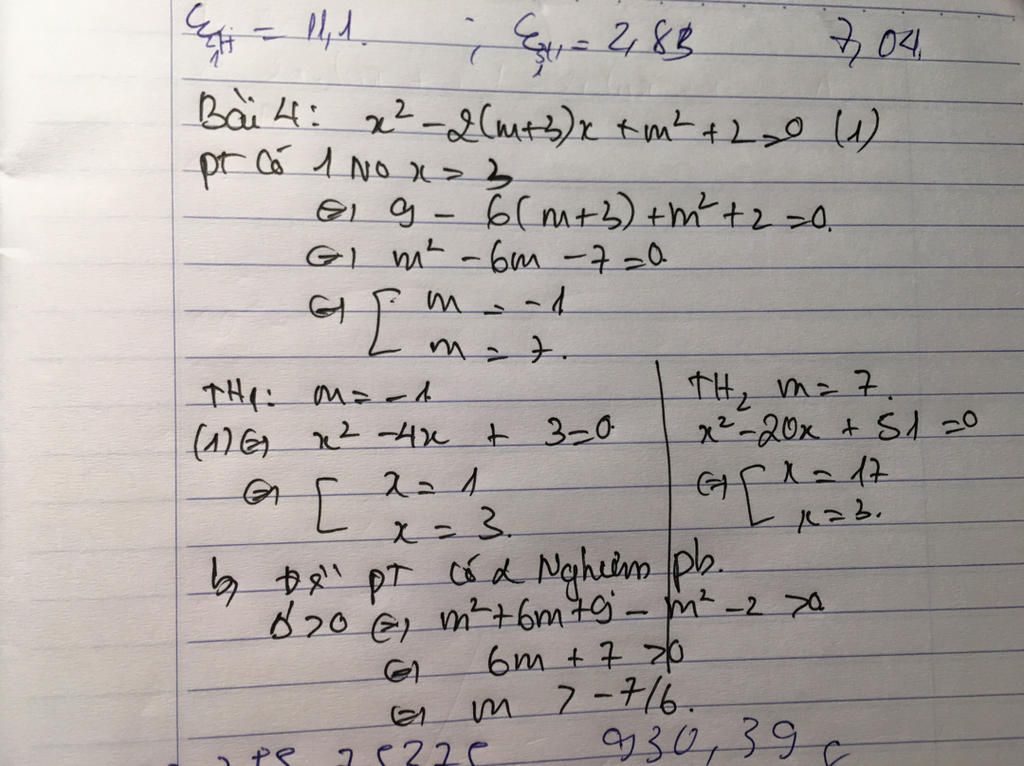 = 11,1. ; = 2,83 7,04.
Bài 4: x² - 2(m+3)x + m² + 2 = 0 (1)
pt Có 1 No x = 3
⇔ 9 - 6(m+3) + m² + 2 = 0.
⇔ m² - 6m - 7 = 0
⇔ [ m = -1
m = 7.
TH1: m = -1
(1) ⇔ x² - 4x + 3 = 0
⇔ [ x = 1
x = 3.
TH2 m = 7.
x² - 20x + 51 = 0
⇔ [ x = 17
x = 3.
b, Để pT Có 2 Nghiệm pb.
Δ' > 0 ⇔ m² + 6m + 9 - m² - 2 > 0
⇔ 6m + 7 > 0
⇔ m > -7/6.
930,39